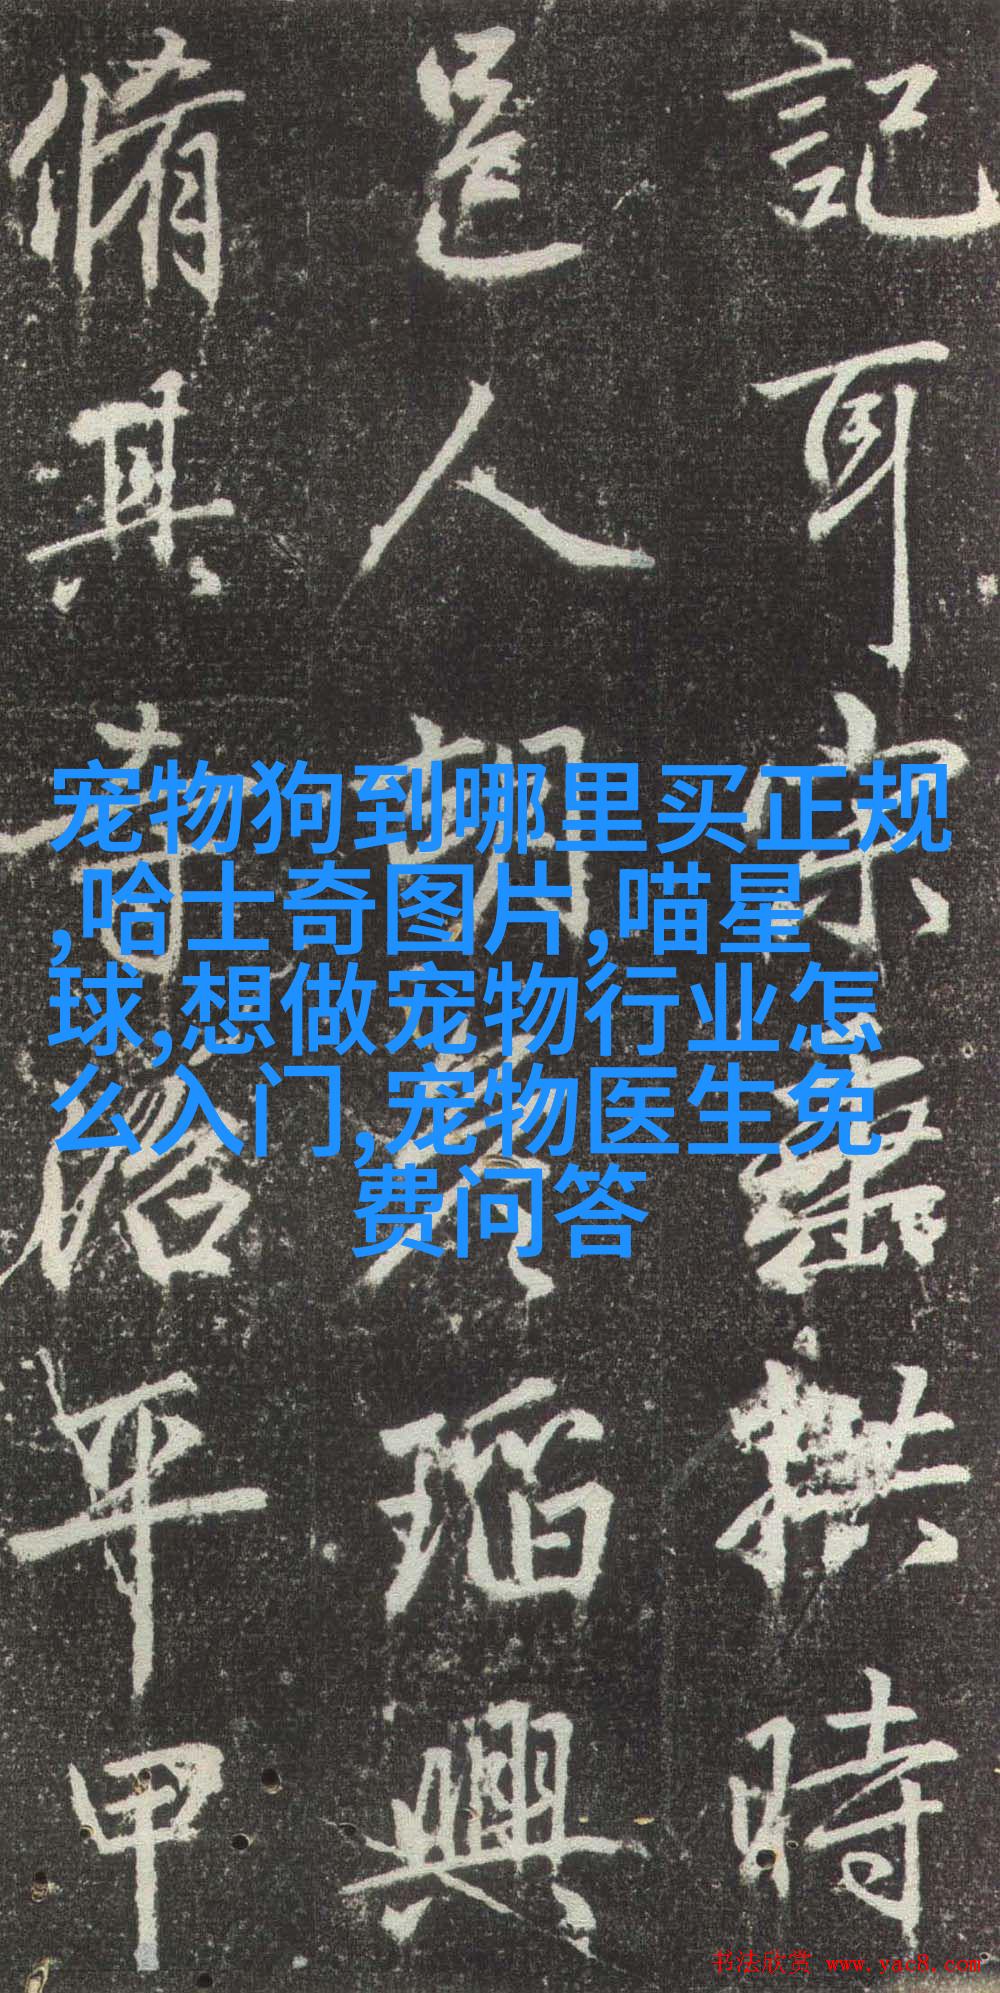 記耳宋垂拱時
邑人胡　瑫興
脩其寺　平甲
宠物狗到哪里买正规
,哈士奇图片,喵星
球,想做宠物行业怎
么入门,宠物医生免
费问答
书法欣赏 www.yac8.com